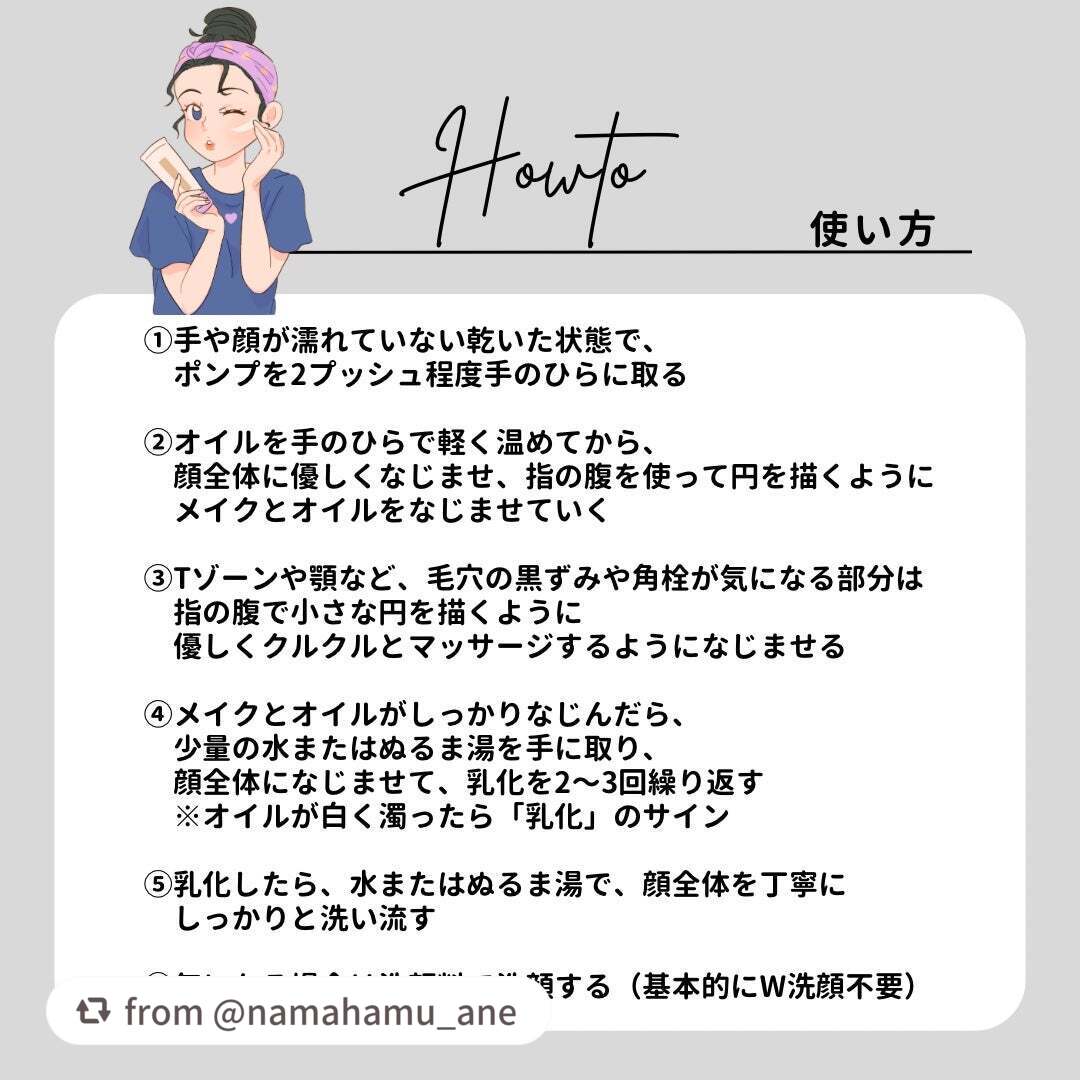 Howto
使い方
①手や顔が濡れていない乾いた状態で、
ポンプを2プッシュ程度手のひらに取る
②オイルを手のひらで軽く温めてから、
顔全体に優しくなじませ、指の腹を使って円を描くように
メイクとオイルをなじませていく
③Tゾーンや顎など、毛穴の黒ずみや角栓が気になる部分は
指の腹で小さな円を描くように
優しくクルクルとマッサージするようになじませる
④メイクとオイルがしっかりなじんだら、
少量の水またはぬるま湯を手に取り、
顔全体になじませて、乳化を2〜3回繰り返す
※オイルが白く濁ったら「乳化」のサイン
⑤乳化したら、水またはぬるま湯で、顔全体を丁寧に
しっかりと洗い流す
する（基本的にW洗顔不要）
from @namahamu_ane